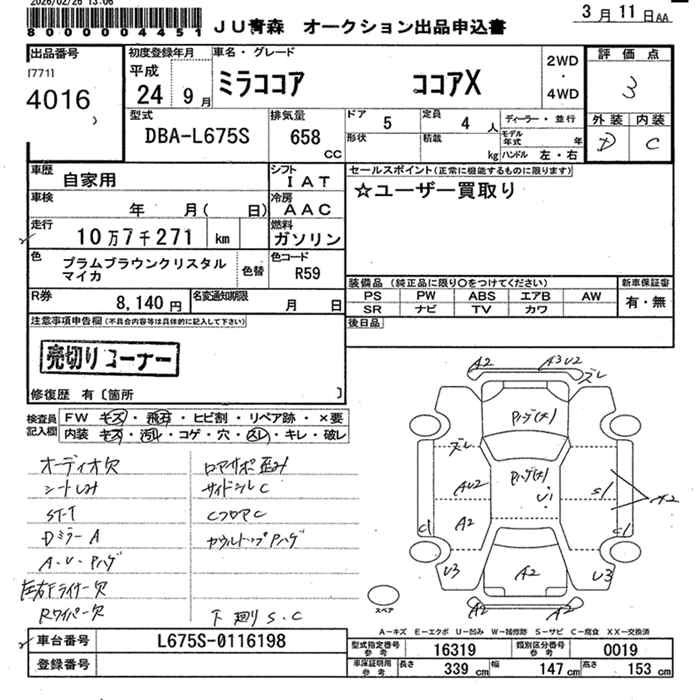 2026/02/26 13:06
80000004451
JU青森 オークション出品申込書
3月11日AA
出品番号
[771]
4016
初度登録年月
平成
24 9月
車名・グレード
ミラココア ココアX
2WD
・
4WD
評価点
3
外装 内装
D C
型式
DBA-L675S
排気量
658
CC
ドア 5
定員 4 人
形状
積載 kg
ディーラー・並行
モデル年式 年
ハンドル 左・右
車歴 自家用
シフト IAT
車検 年 月( 日)
冷房 AAC
走行 10万7千271 km
燃料 ガソリン
色 プラムブラウンクリスタル
マイカ
色替
色コード R59
R券 8,140円
名変通知期限 月 日
セールスポイント(正常に機能するものに限ります)
☆ユーザー買取り
装備品 (純正品に限り○をつけてください)
PS PW ABS エアB AW
SR ナビ TV カワ
新車保証書
有・無
後日品
注意事項申告欄(不具合内容等は具体的に記入して下さい)
売切りコーナー
修復歴 有〔箇所 〕
検査員
記入欄
FW キズ・飛石・ヒビ割・リペア跡・×要
内装・キズ・汚レ・コゲ・穴・スレ・キレ・破レ
オーディオ欠
シートしみ
ST-T
DミラーA
A・U・Pハゲ
左右Fライナー欠
Rワイパー欠
ロアサポ歪み
サイドシルC
CフロアC
カウルトップPハゲ
下廻りS.C
A2
A3U2
ズレ
Pハゲ(大)
ズレ
Pハゲ(大)
AU2
U1
S1
A2
A2
C1
C1
U3
A2
U3
A2
A2
スペア
A-キズ E-エクボ U-凹み W-補修跡 S-サビ C-腐食 XX-交換済
車台番号 L675S-0116198
登録番号
型式指定番号
参考
16319
類別区分番号
参考
0019
車庫証明用
参考
長さ 339cm
幅 147cm
高さ 153cm